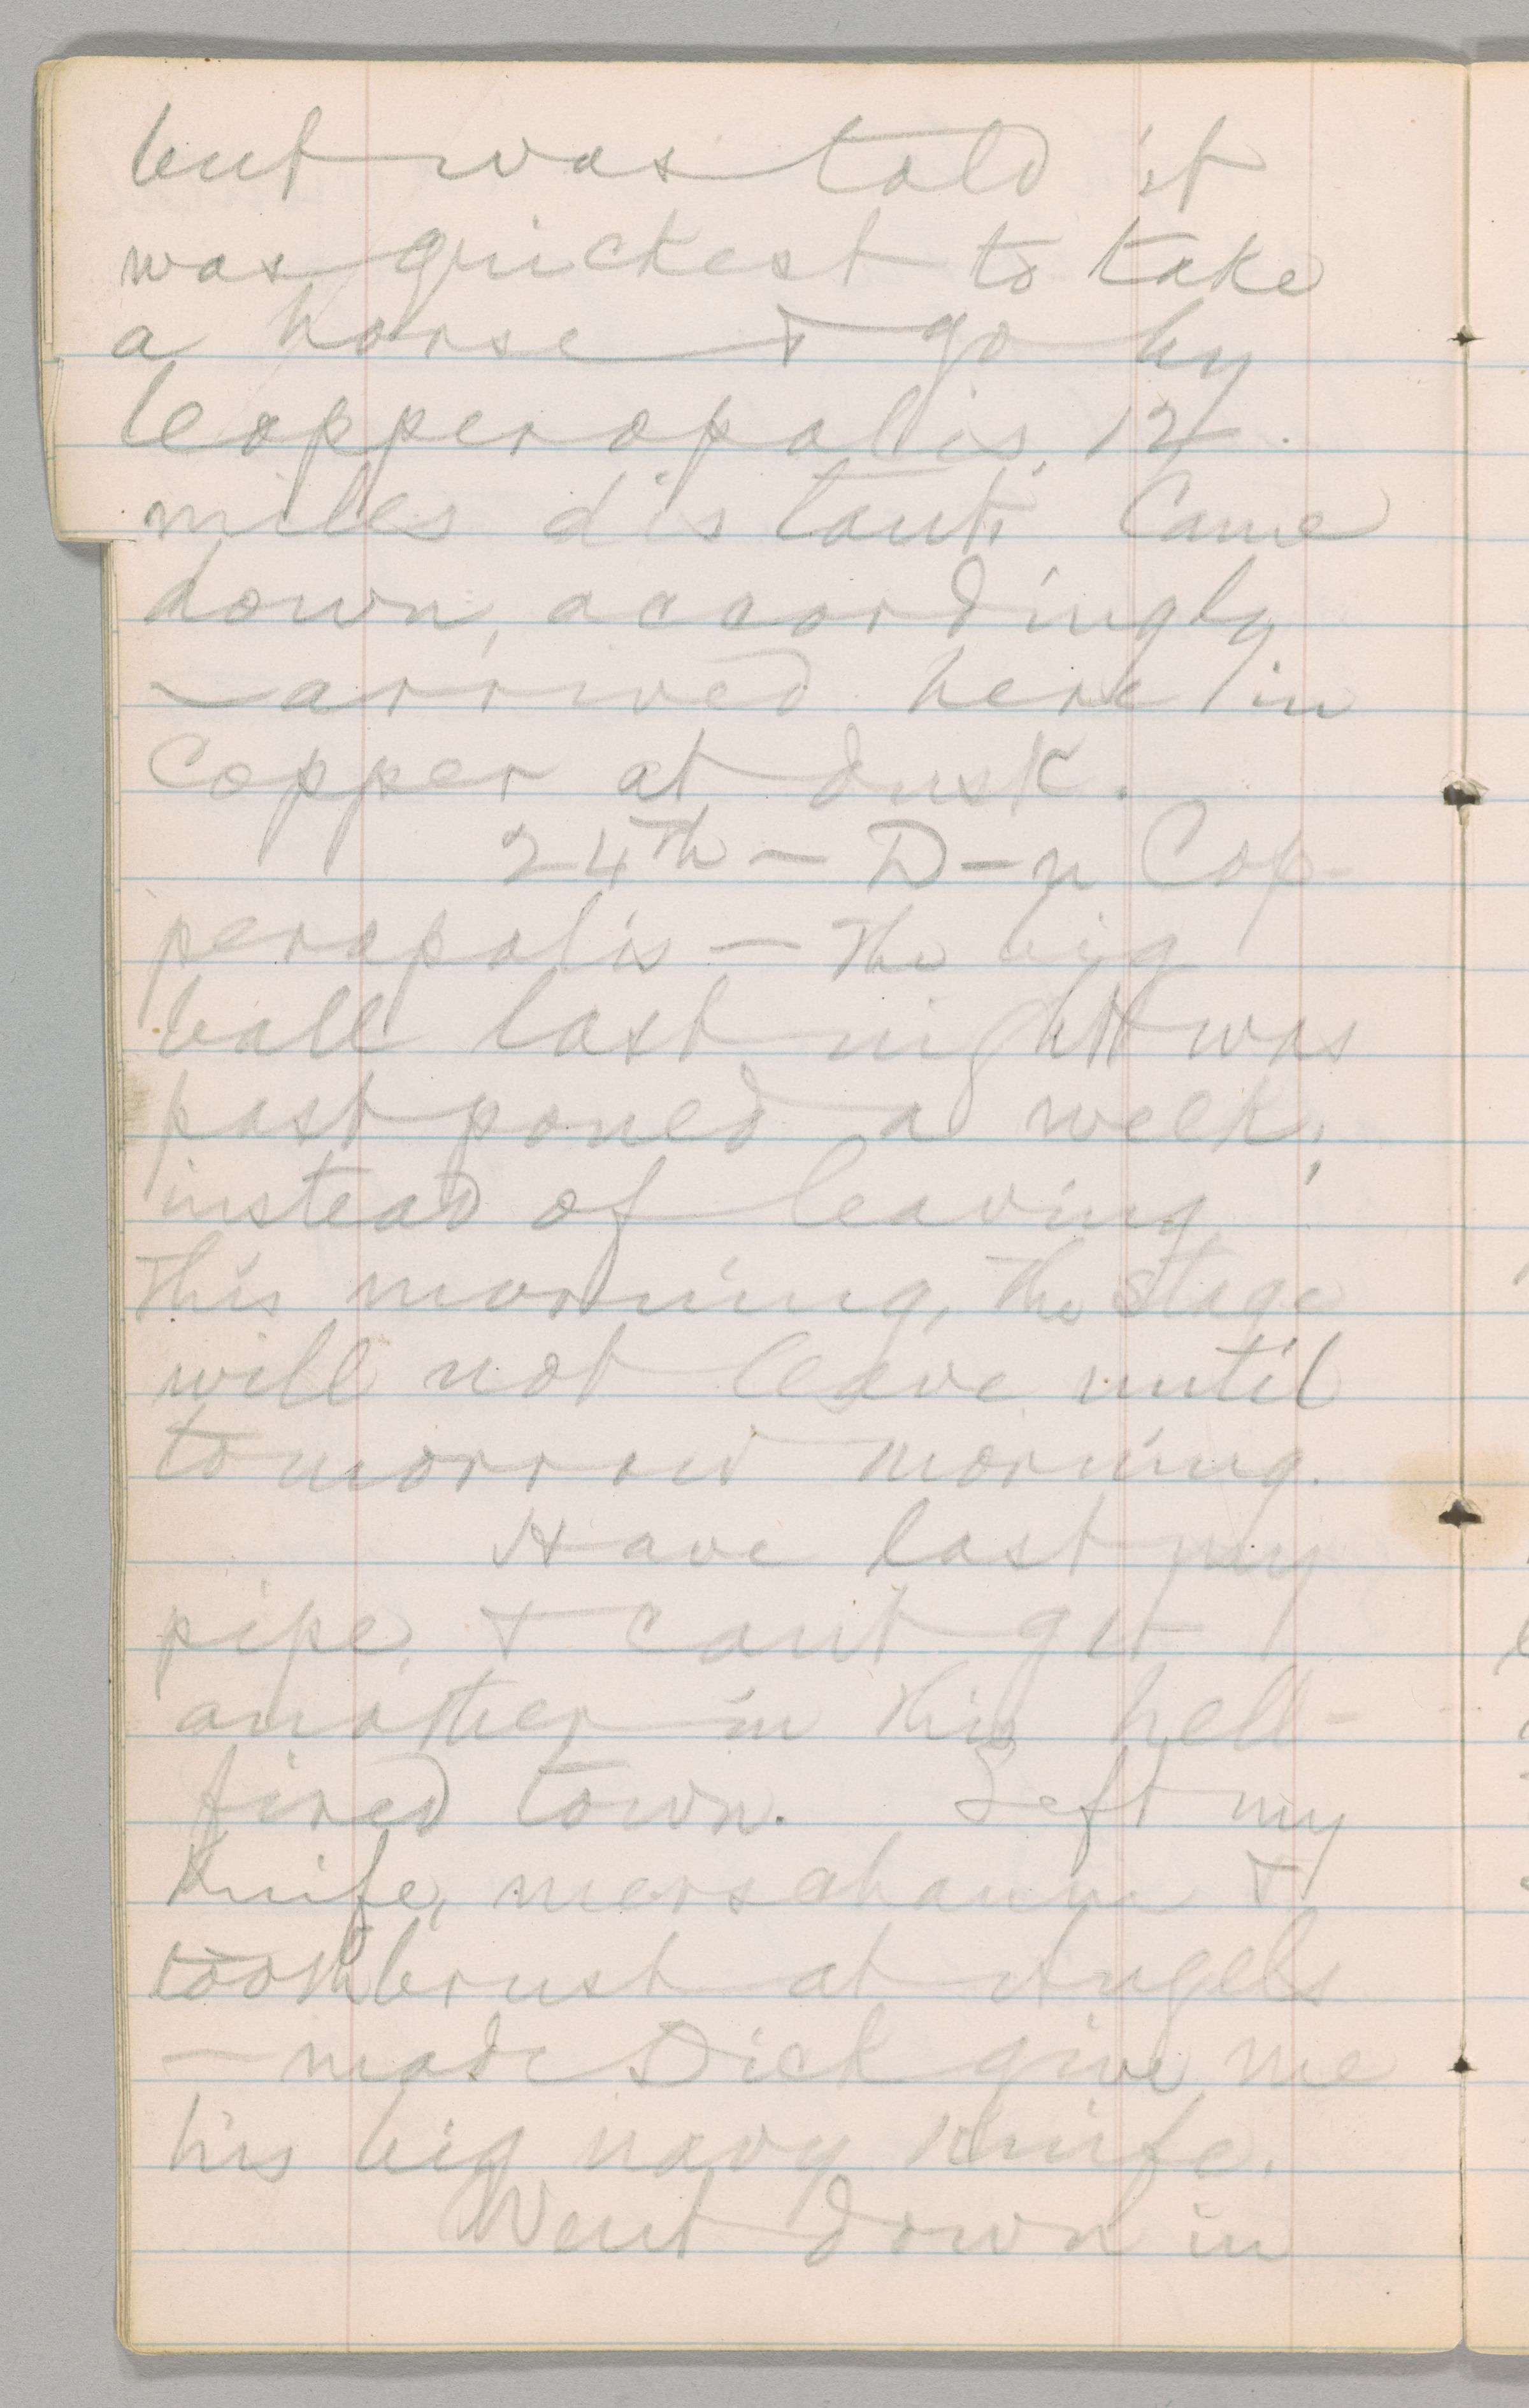 but was told it
was quickest to take
a horse & go by
Copperopolis, 12
miles distant. Came
down, accordingly
— arrived here in
Copper at dusk.
24th — D—n Cop-
peropolis — the big
ball last night was
postponed a week;
instead of leaving
this morning, the stage
will not leave until
tomorrow morning.
Have lost my
pipe, & can't get
another in this hell-
fired town. Left my
knife, merschaum &
toothbrush at Angels
— made Dick give me
his big navy knife.
Went down in